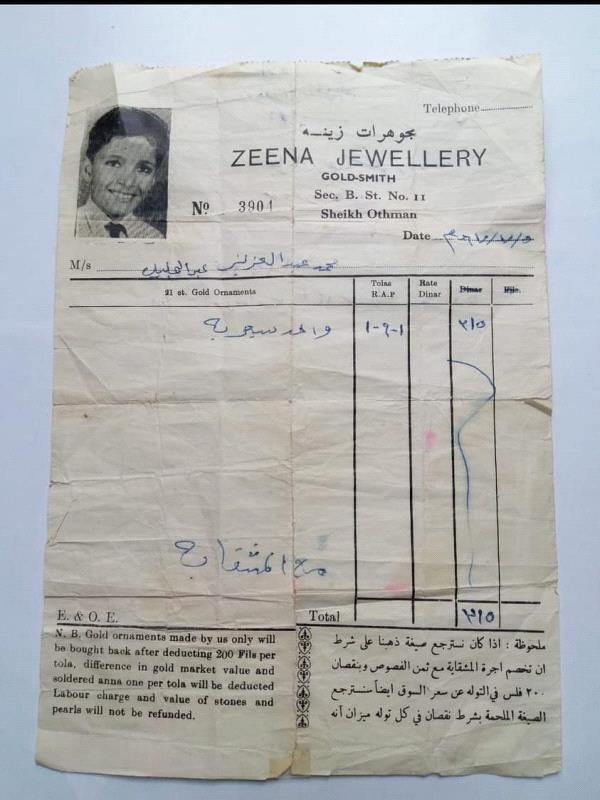 Telephone
مجوهرات زينـــة
ZEENA JEWELLERY
GOLD-SMITH
Sec. B. St. No. 11
Sheikh Othman
Nº 3904
Date
M/s محمد عبد العزيز عبد الجليل
21 ct. Gold Ornaments
Tolas R.A.P
Rate Dinar
Dinar
Fils.
١-٩-١ ٣١٥
E. & O. E.
Total ٣١٥
N. B. Gold ornaments made by us only will
be bought back after deducting 200 Fils per
tola, difference in gold market value and
soldered anna one per tola will be deducted
Labour charge and value of stones and
pearls will not be refunded.
ملحوظة : اذا كان نسترجع صيغة ذهبنا على شرط
ان تخصم اجرة المشقاية مع ثمن الفصوص وبنقصان
٢٠٠ فلس في التوله عن سعر السوق ايضاً سنسترجع
الصيغة الملحمة بشرط نقصان في كل توله ميزان آنه